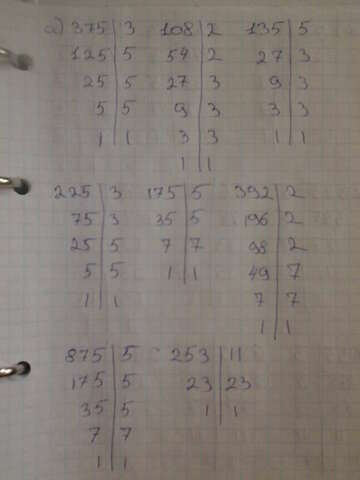 а) 375|3 108|2 135|5
125|5 54|2 27|3
25|5 27|3 9|3
5|5 9|3 3|3
1|1 3|3 1|1
1|1
225|3 175|5 392|2
75|3 35|5 196|2
25|5 7|7 98|2
5|5 1|1 49|7
1|1 7|7
1|1
875|5 253|11
175|5 23|23
35|5 1|1
7|7
1|1